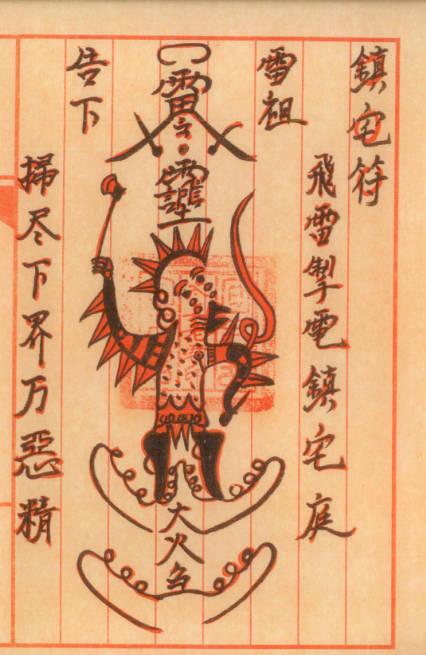 鎮宅符
飛雪掣電鎮宅庭
雪祖
大火
告下
掃尽下界万惡精